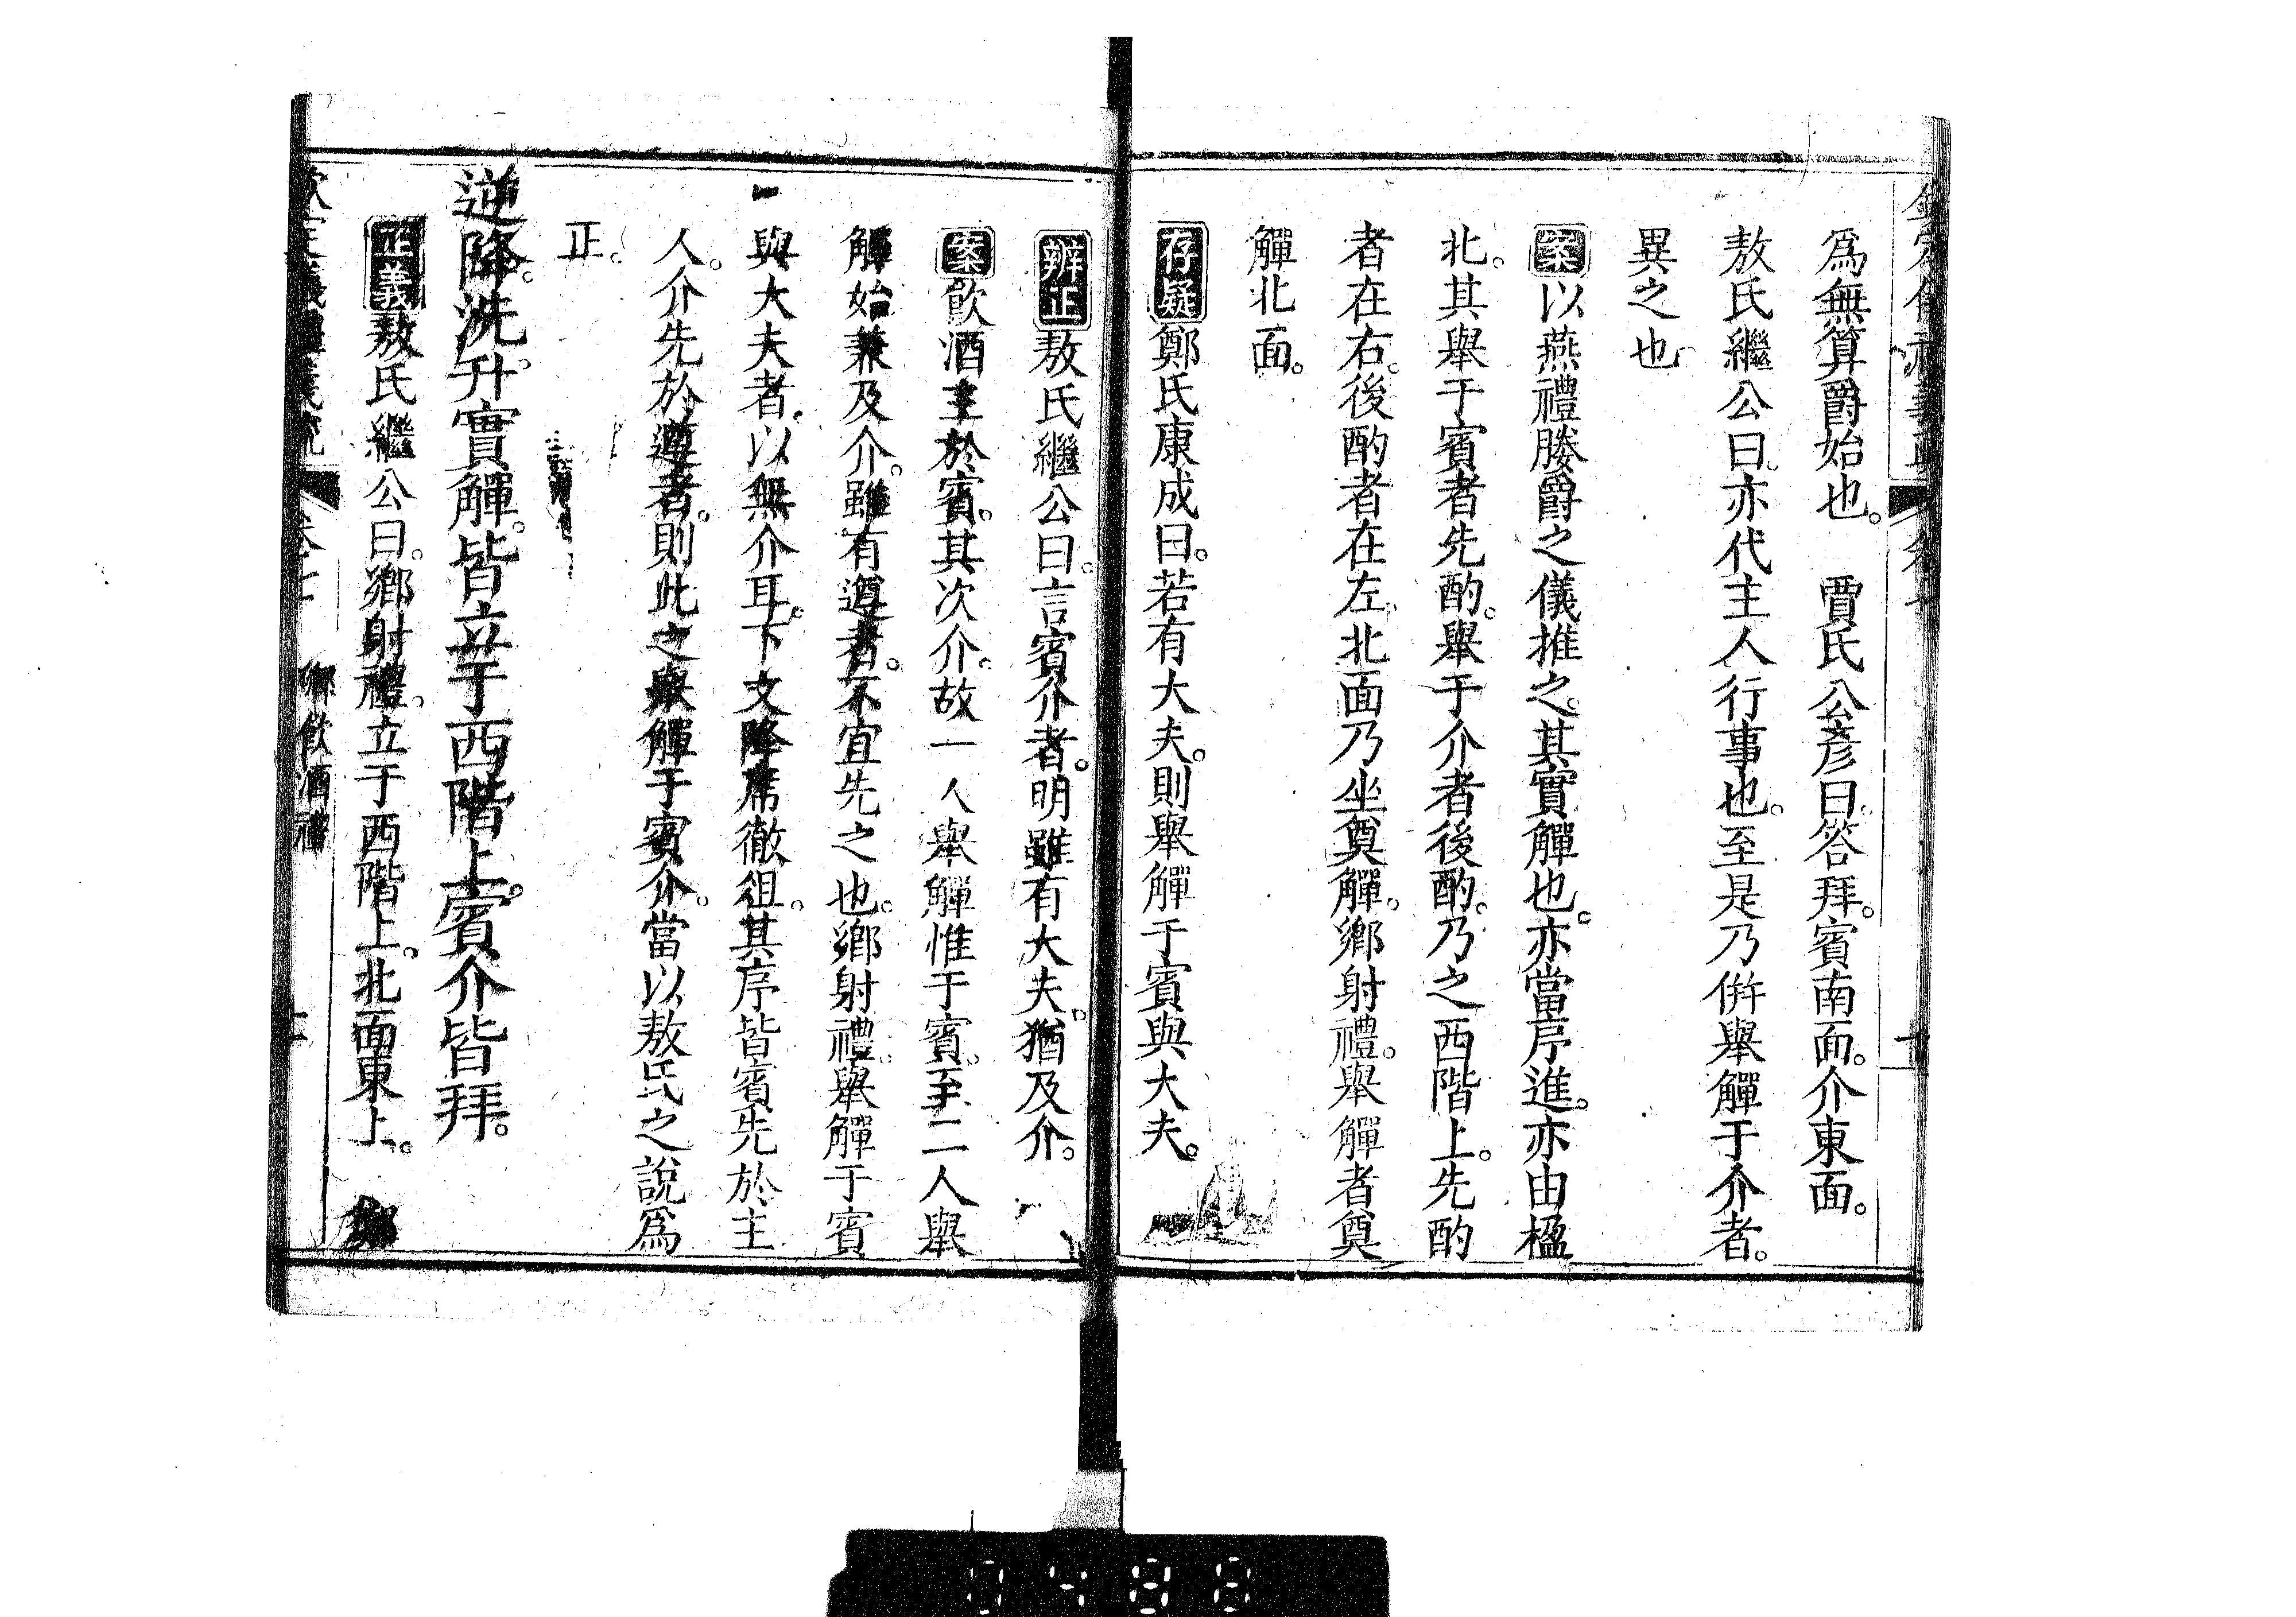 爲無算爵始也。 賈氏公彥曰。答拜。賓南面。介東面。
敖氏繼公曰。亦代主人行事也。至是乃併舉觶于介者。
異之也
案以燕禮媵爵之儀推之。其實觶也。亦當序進。亦由楹
北。其舉于賓者先酌。舉于介者後酌。乃之西階上。先酌
者在右。後酌者在左。北面乃坐奠觶。鄉射禮。舉觶者奠
觶北面。
存疑鄭氏康成曰。若有大夫。則舉觶于賓與大夫。
辨正敖氏繼公曰。言賓介者。明雖有大夫。猶及介。
案飲酒主於賓。其次介。故一人舉觶惟于賓。至二人舉
觶始兼及介。雖有遵者。不宜先之也。鄉射禮。舉觶于賓
與大夫者。以無介耳。下文降席徹俎。其序皆賓先於主
人。介先於遵者。則此之舉觶于賓介。當以敖氏之說爲
正。
逆降。洗。升實觶。皆立于西階上。賓介皆拜。
正義敖氏繼公曰。鄉射禮。立于西階上。北面東上。 鄭
卷七 鄉飲酒禮
0488